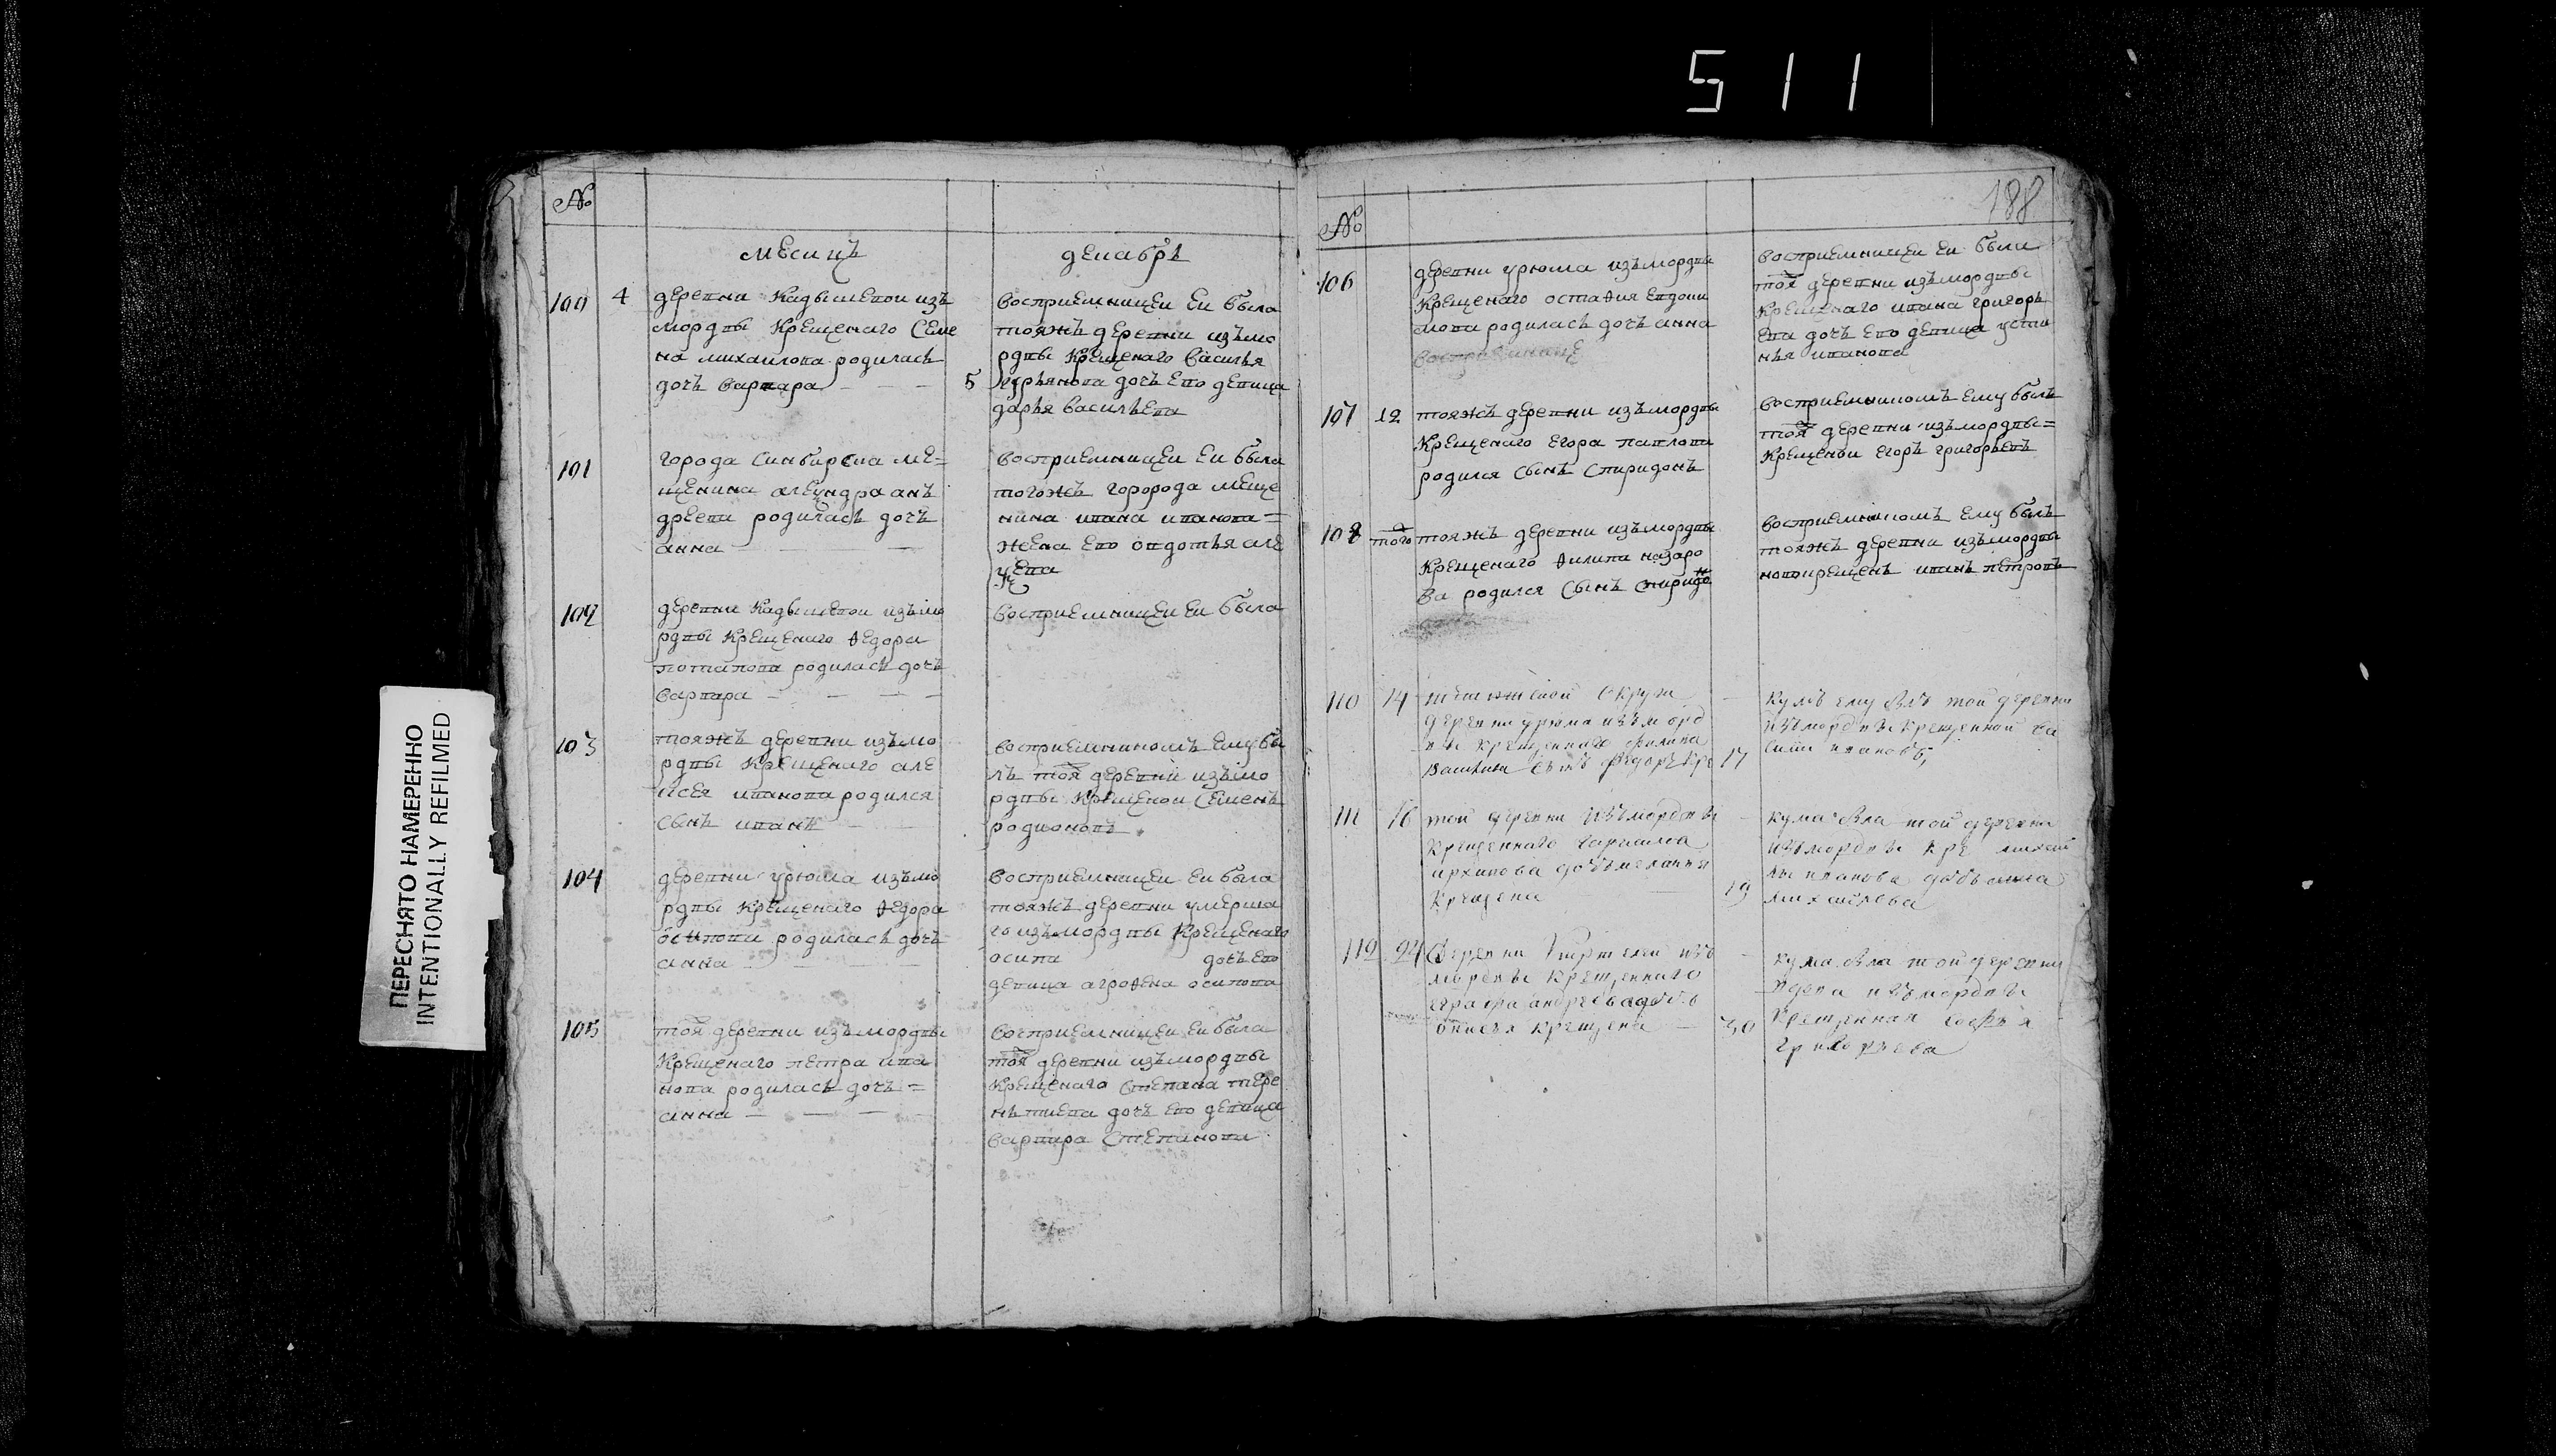 511
188
№
месицъ
декабрь
100 4
деревни Кадышевои изъ
мордвы Крещенаго Семе
на михаилова родиласъ
дочь варвара
5
восприемницеи еи была
тояжъ деревни изъмо
рдвы крещенаго василья
дочь ево девица
дарья васильева
101
города Синбирска ме=
щенина алеѯндра анъ
дреева родилась дочь
анна
восприемницеи еи была
тогожъ горорода меще
нина ивана иванова=
жена ево овдотья але
102
деревни Кадышевои изъмо
рдвы крещенаго ѳедора
потапова родилась дочь
варвара
восприемницеи еи была
103
тояжъ деревни изъмо
рдвы Крещенаго але
ксея иванова родился
сынъ иванъ
восприемникомъ ему бы
лъ тояж деревни изъмо
рдвы Крещенои Семенъ
родионовъ
104
деревни урюма изъмо
рдвы крещенаго ѳедора
осипова родилась дочь
анна
восприемницеи еи была
тояжъ деревни умерша
го изъмордвы Крещенаго
осипа дочь ево
девица агроѳена осипова
105
тояж деревни изъмордвы
Крещенаго петра ива
нова родилась дочь=
анна
восприемницеи еи была
тояж деревни изъмордвы
Крещенаго Степана тере
нътиева дочь ево девица
варвара Степанова
№
106
деревни урюма изъмордвы
Крещенаго остаѳия евдоки
мова родилась дочь анна
восприемнице
восприемницеи еи были
тояж деревни изъмордвы
Крещенаго ивана григорь
ева дочь ево девица усти
нья иванова
107 12
тояжъ деревни изъмордвы
Крещенаго егора павлова
родился сынъ спиридонъ
восприемникомъ ему былъ
тояж деревни изъмордвы=
Крещенои егоръ григорьевъ
108 того
тояжъ деревни изъмордвы
Крещенаго ѳилипа назаро
ва родился сынъ спиридо
восприемникомъ ему былъ
тояжъ деревни изъмордвы
новокрещенъ иванъ петровъ
110 14
округи
деревни урюма изъ морд
вы крещеннаго филипа
сынъ федоръ кре
17
кумъ ему былъ той деревни
изъмордвы крещенной ва
силий ивановъ,
111 16
той деревни изъмордвы
крещеннаго
архипова дочь мелания
крещена
19
кума была той деревни
изъмордвы кре михай
лы иванова дочь анна
михайлова
112 24
деревни изъ
мордвы крещеннаго
андреева дочь
крещена
30
кума была той деревни
вдова изъмордвы
крещенная софья
григорьева
ПЕРЕСНЯТО НАМЕРЕННО
INTENTIONALLY REFILMED